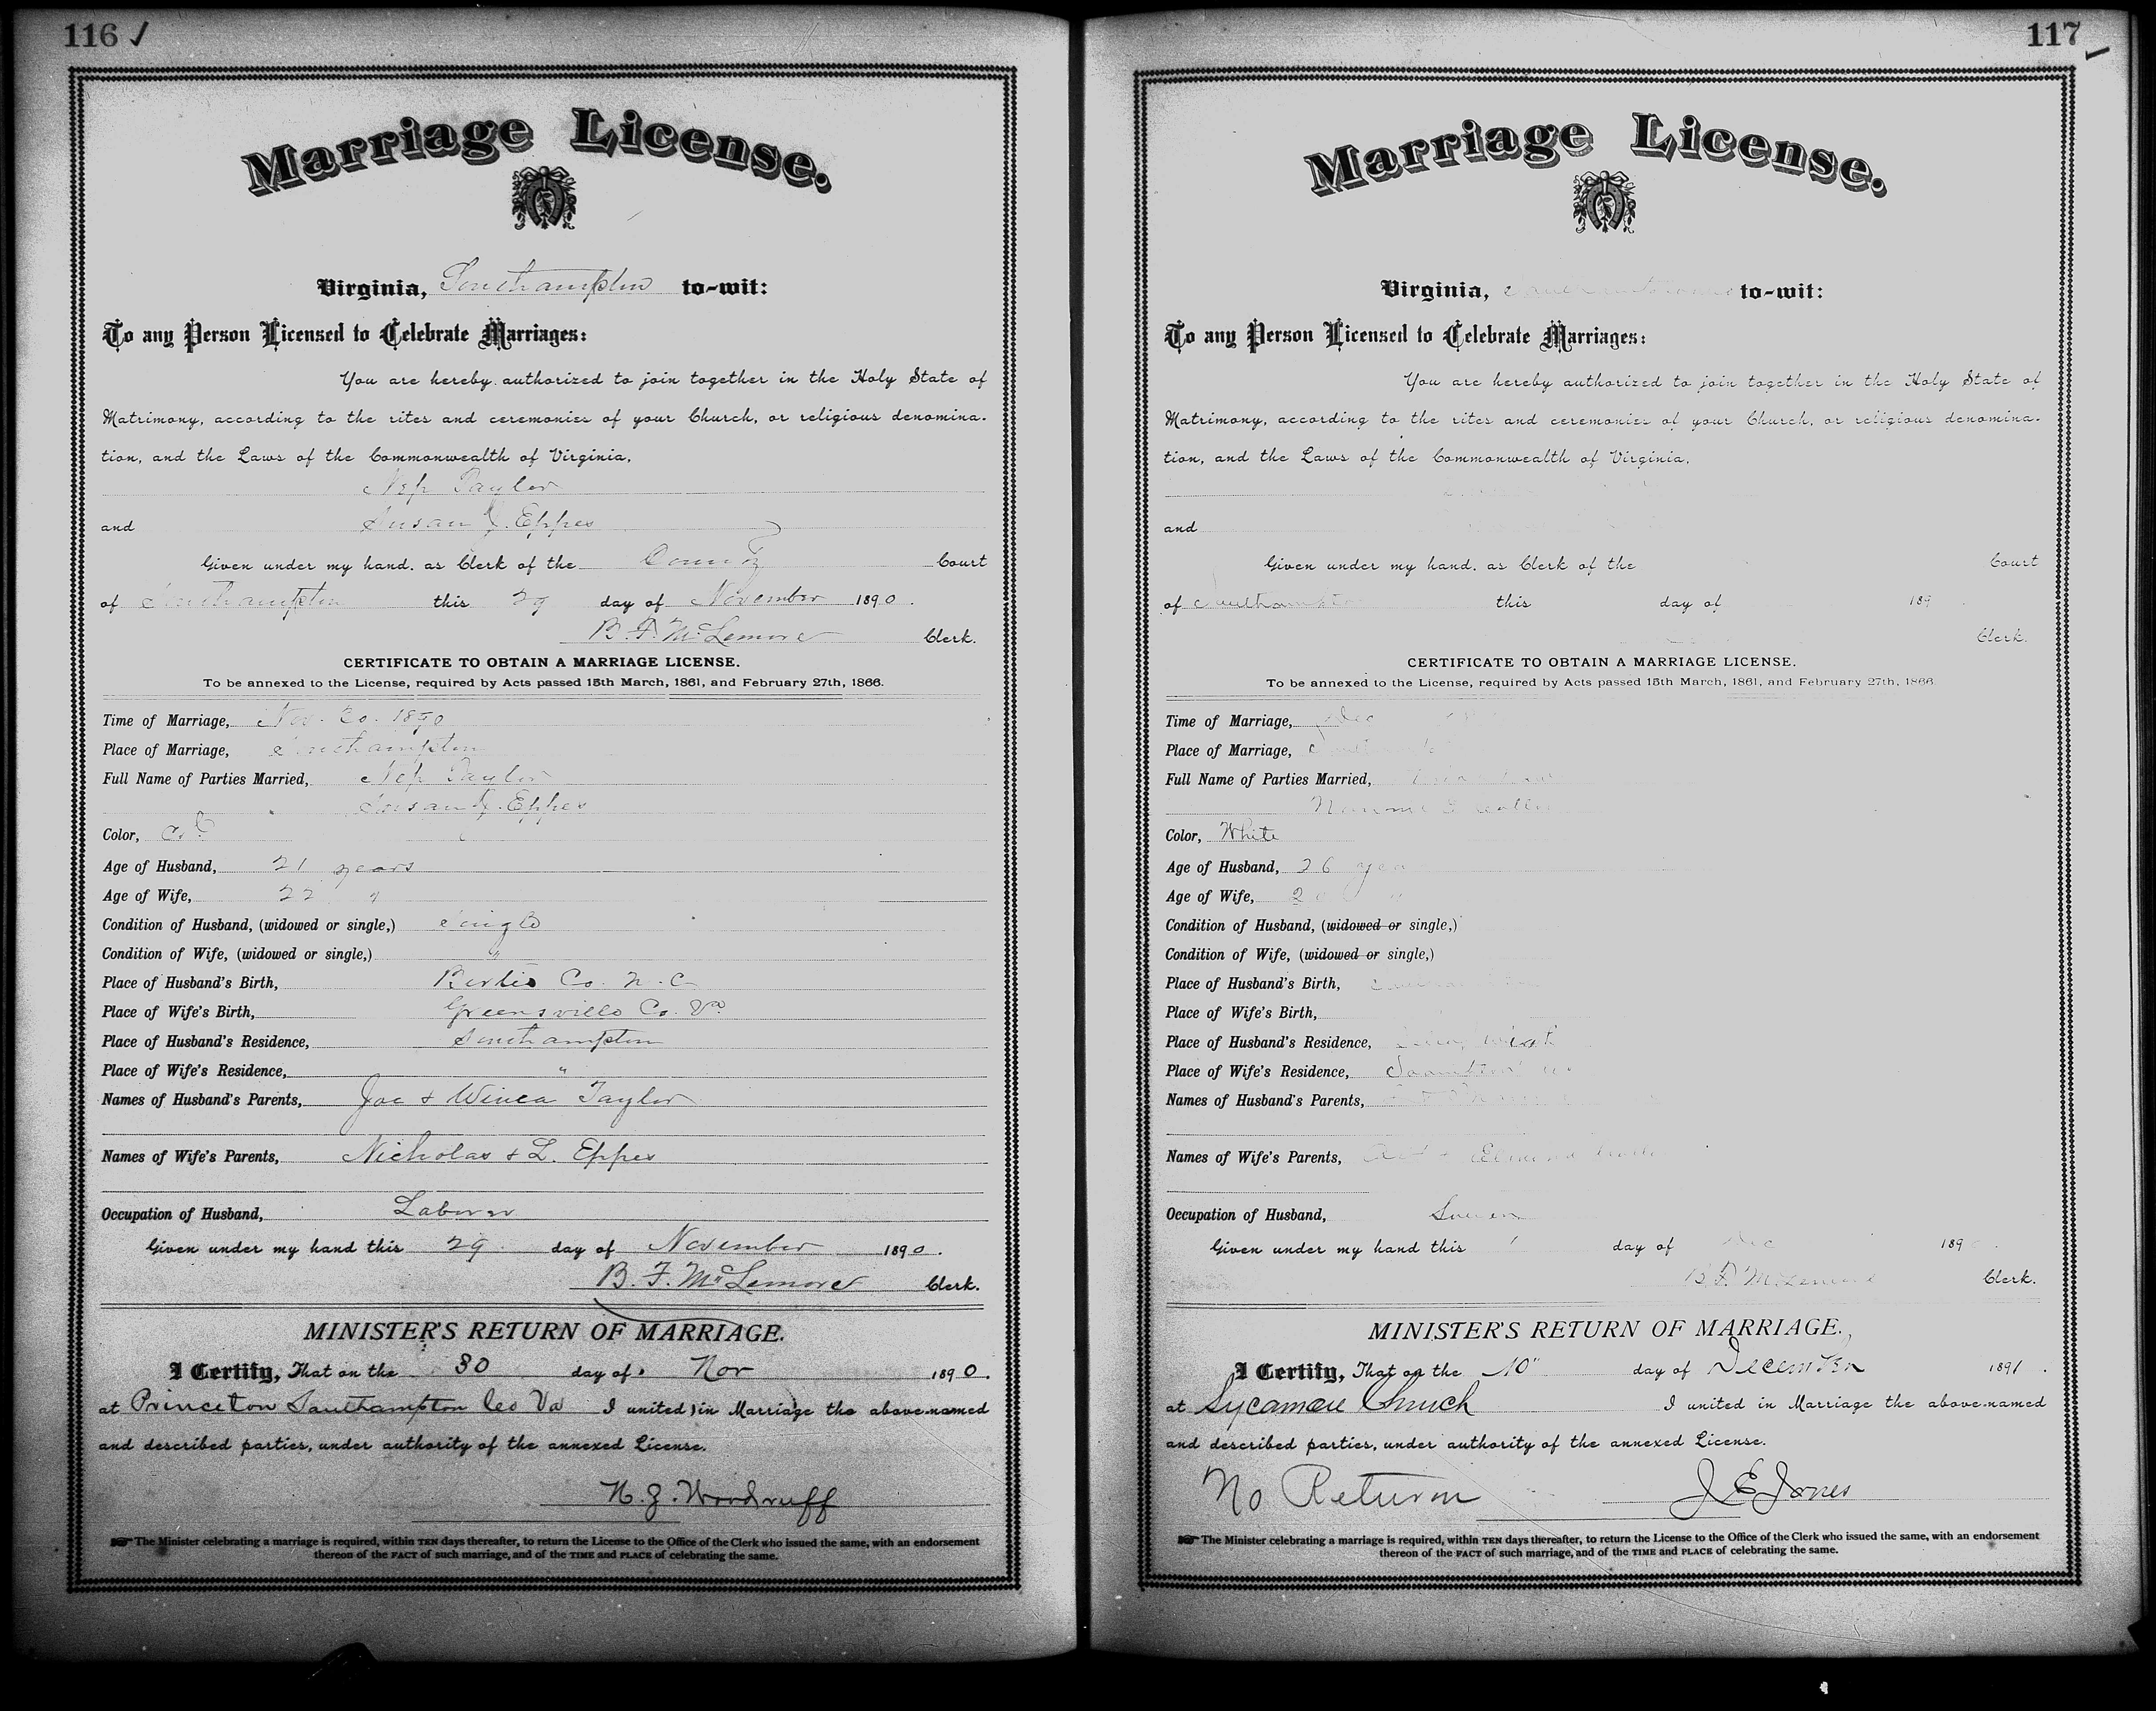 116
Marriage License.
Virginia, Southampton to-wit:
To any Person Licensed to Celebrate Marriages:
You are hereby authorized to join together in the Holy State of
Matrimony, according to the rites and ceremonies of your Church, or religious denomina-
tion, and the Laws of the Commonwealth of Virginia,
Nep Taylor
and Susan J. Eppes
Given under my hand, as Clerk of the County Court
of Southampton this 29 day of November 1890.
B. F. McLemore Clerk.
CERTIFICATE TO OBTAIN A MARRIAGE LICENSE.
To be annexed to the License, required by Acts passed 15th March, 1861, and February 27th, 1866.
Time of Marriage, Nov. 30. 1890
Place of Marriage, Southampton
Full Name of Parties Married, Nep Taylor
Susan J. Eppes
Color, Cold
Age of Husband, 21 years
Age of Wife, 22 "
Condition of Husband, (widowed or single,) Single
Condition of Wife, (widowed or single,) "
Place of Husband's Birth, Bertie Co. N. C
Place of Wife's Birth, Greensville Co. Va
Place of Husband's Residence, Southampton
Place of Wife's Residence, "
Names of Husband's Parents, Joe & Winea Taylor
Names of Wife's Parents, Nicholas & L. Eppes
Occupation of Husband, Laborer
Given under my hand this 29 day of November 1890.
B. F. McLemore Clerk.
MINISTER'S RETURN OF MARRIAGE.
I Certify, That on the 30 day of Nov 1890.
at Princeton Southampton Co Va I united in Marriage the above-named
and described parties, under authority of the annexed License.
N. Z. Woodruff
The Minister celebrating a marriage is required, within TEN days thereafter, to return the License to the Office of the Clerk who issued the same, with an endorsement
thereon of the FACT of such marriage, and of the TIME and PLACE of celebrating the same.
117
Marriage License.
Virginia, to-wit:
To any Person Licensed to Celebrate Marriages:
You are hereby authorized to join together in the Holy State of
Matrimony, according to the rites and ceremonies of your Church, or religious denomina-
tion, and the Laws of the Commonwealth of Virginia,
and
Given under my hand, as Clerk of the Court
of Southampton this day of 189
Clerk.
CERTIFICATE TO OBTAIN A MARRIAGE LICENSE.
To be annexed to the License, required by Acts passed 15th March, 1861, and February 27th, 1866.
Time of Marriage, Dec
Place of Marriage,
Full Name of Parties Married,
Color, White
Age of Husband, 26
Age of Wife,
Condition of Husband, (widowed or single,)
Condition of Wife, (widowed or single,)
Place of Husband's Birth,
Place of Wife's Birth,
Place of Husband's Residence,
Place of Wife's Residence,
Names of Husband's Parents,
Names of Wife's Parents,
Occupation of Husband,
Given under my hand this day of Dec 189
B. F. McLemore Clerk.
MINISTER'S RETURN OF MARRIAGE.
I Certify, That on the 10" day of December 1891.
at Sycamore Church I united in Marriage the above-named
and described parties, under authority of the annexed License.
No Return J E Jones
The Minister celebrating a marriage is required, within TEN days thereafter, to return the License to the Office of the Clerk who issued the same, with an endorsement
thereon of the FACT of such marriage, and of the TIME and PLACE of celebrating the same.